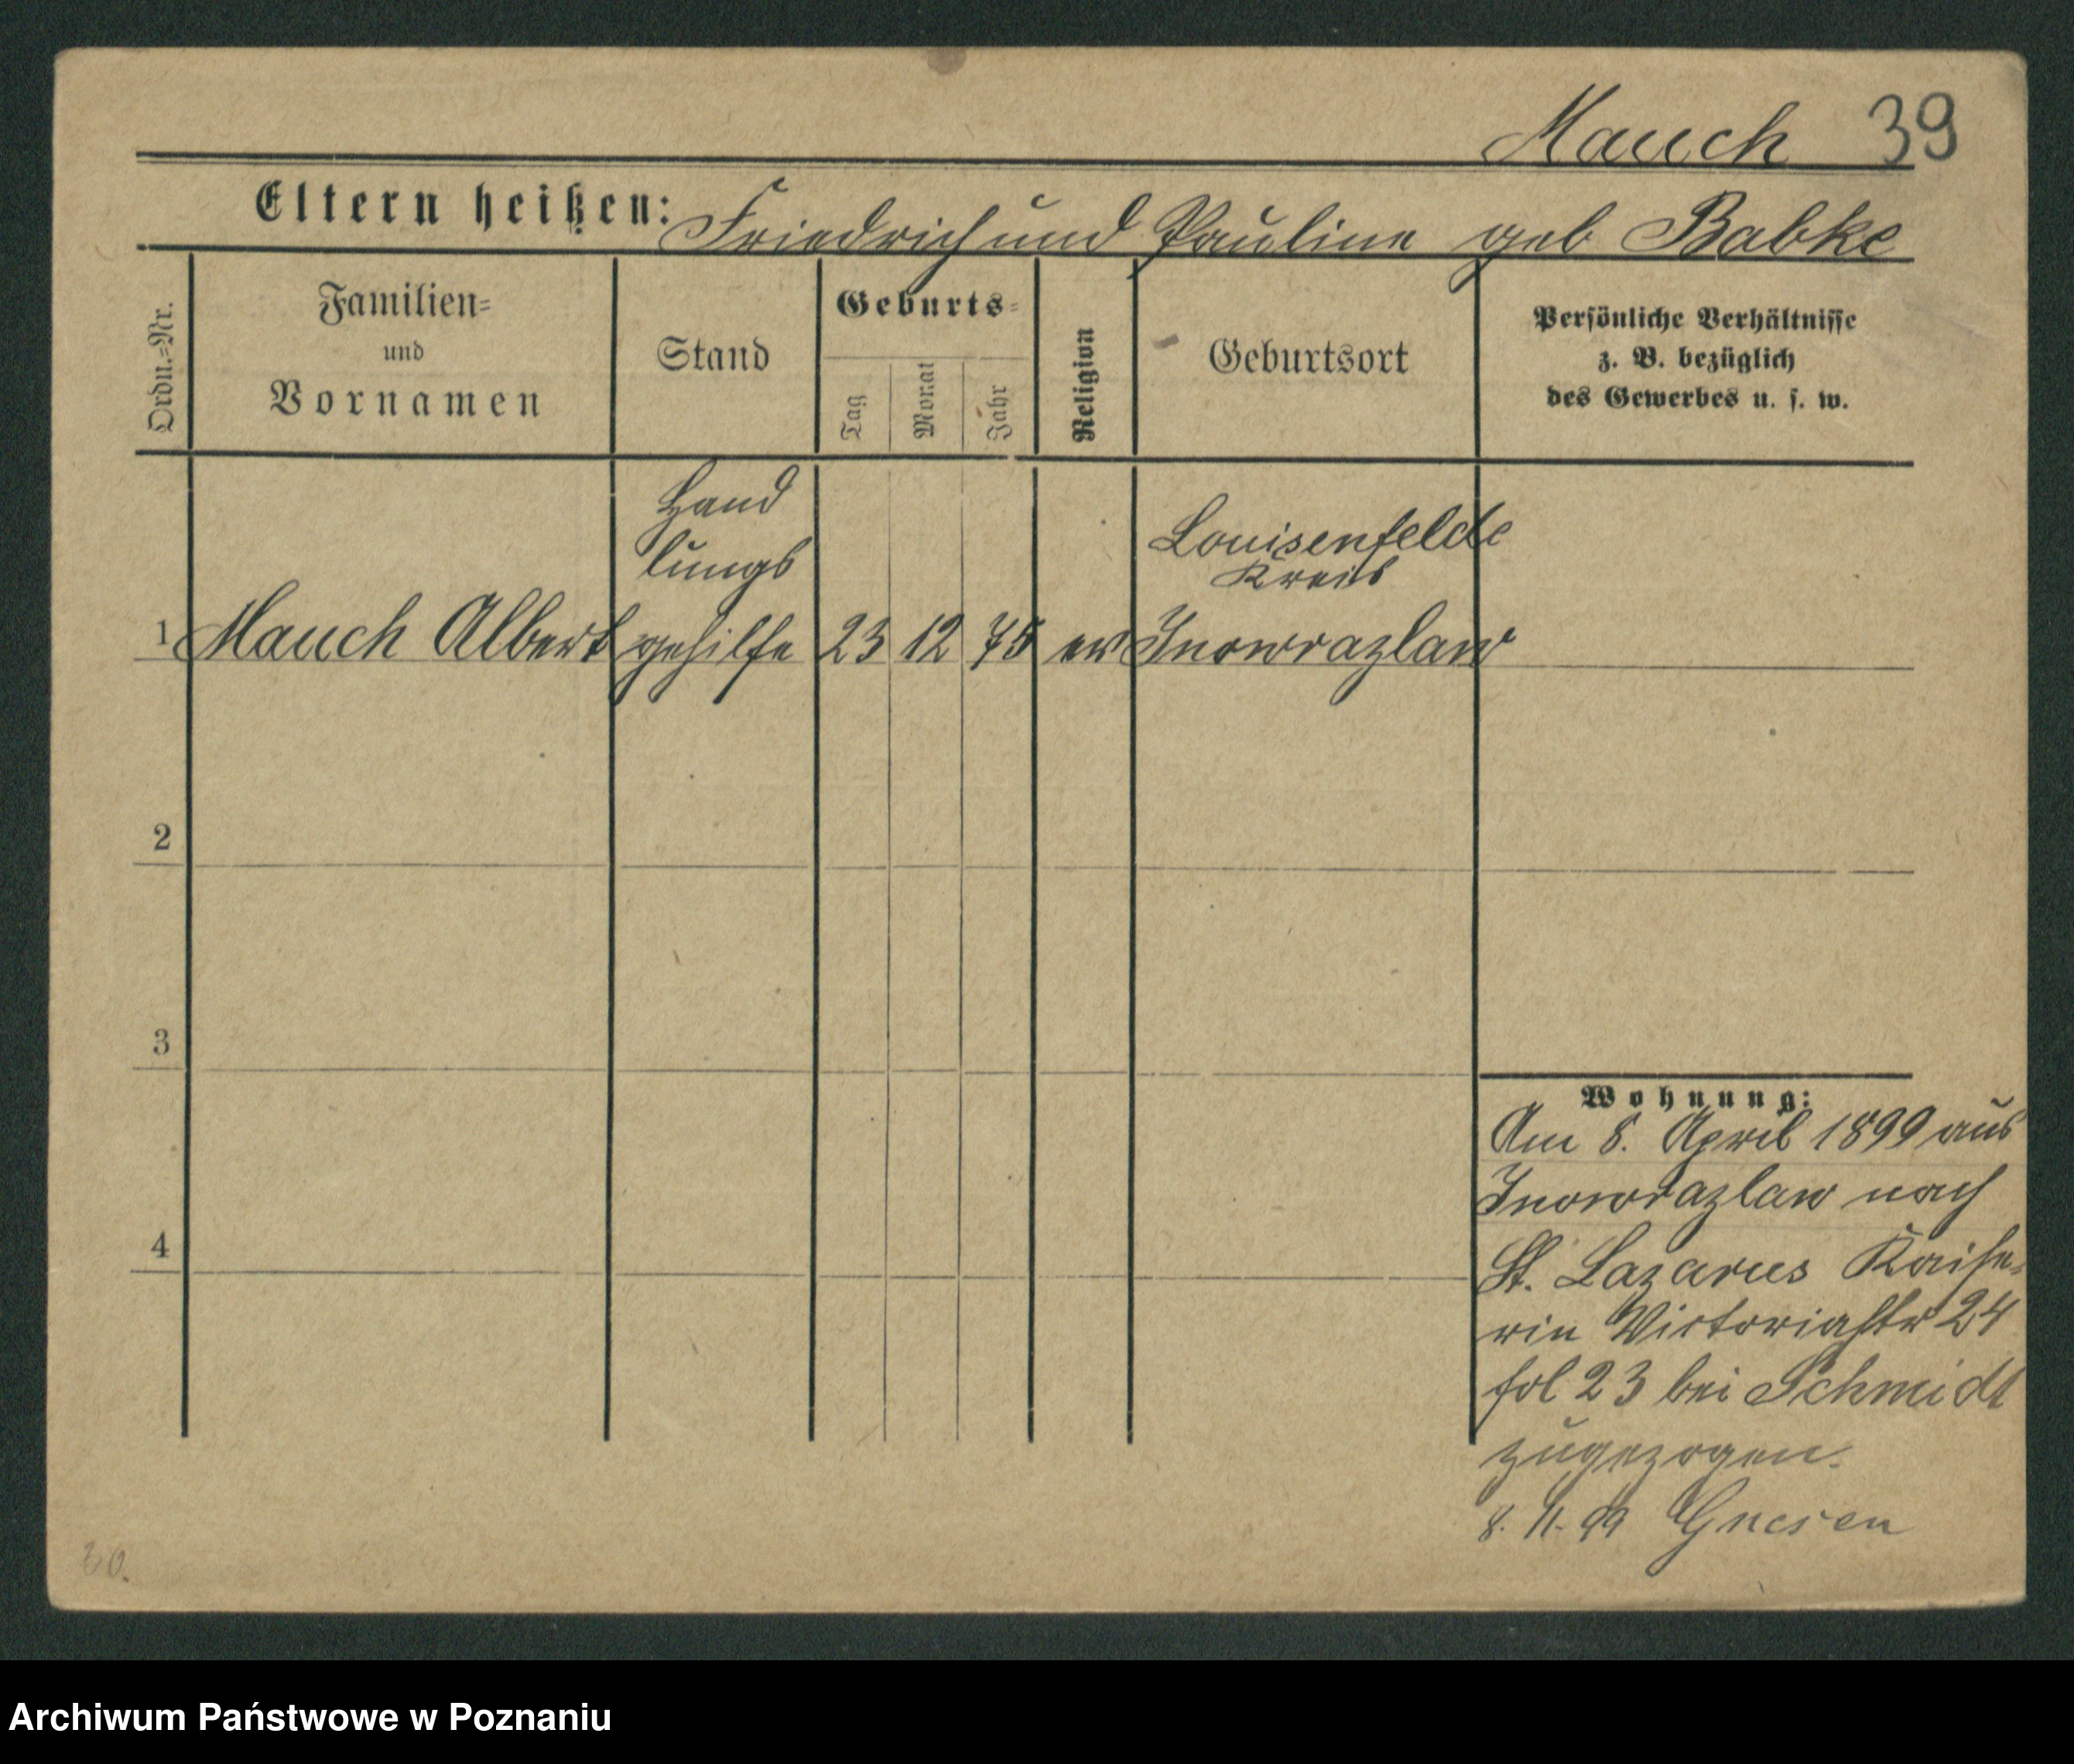 Mauch 39
Eltern heißen: Friedrich und Pauline geb Babke
Ordn.=Nr.
Familien=
und
Vornamen
Stand
Geburts=
Tag
Monat
Jahr
Religion
Geburtsort
Persönliche Verhältnisse
z. B. bezüglich
des Gewerbes u. s. w.
Hand
lungs
Louisenfelde
Kreis
1 Mauch Albert gehilfe 23 12 75 ev Inowrazlaw
2
3
4
Wohnung:
Am 8. April 1899 aus
Inowrazlaw nach
St. Lazarus Kaise-
rin Victoriastr 24
fol 23 bei Schmidt
zugezogen.
8. 11. 99 Gnesen
30.
Archiwum Państwowe w Poznaniu